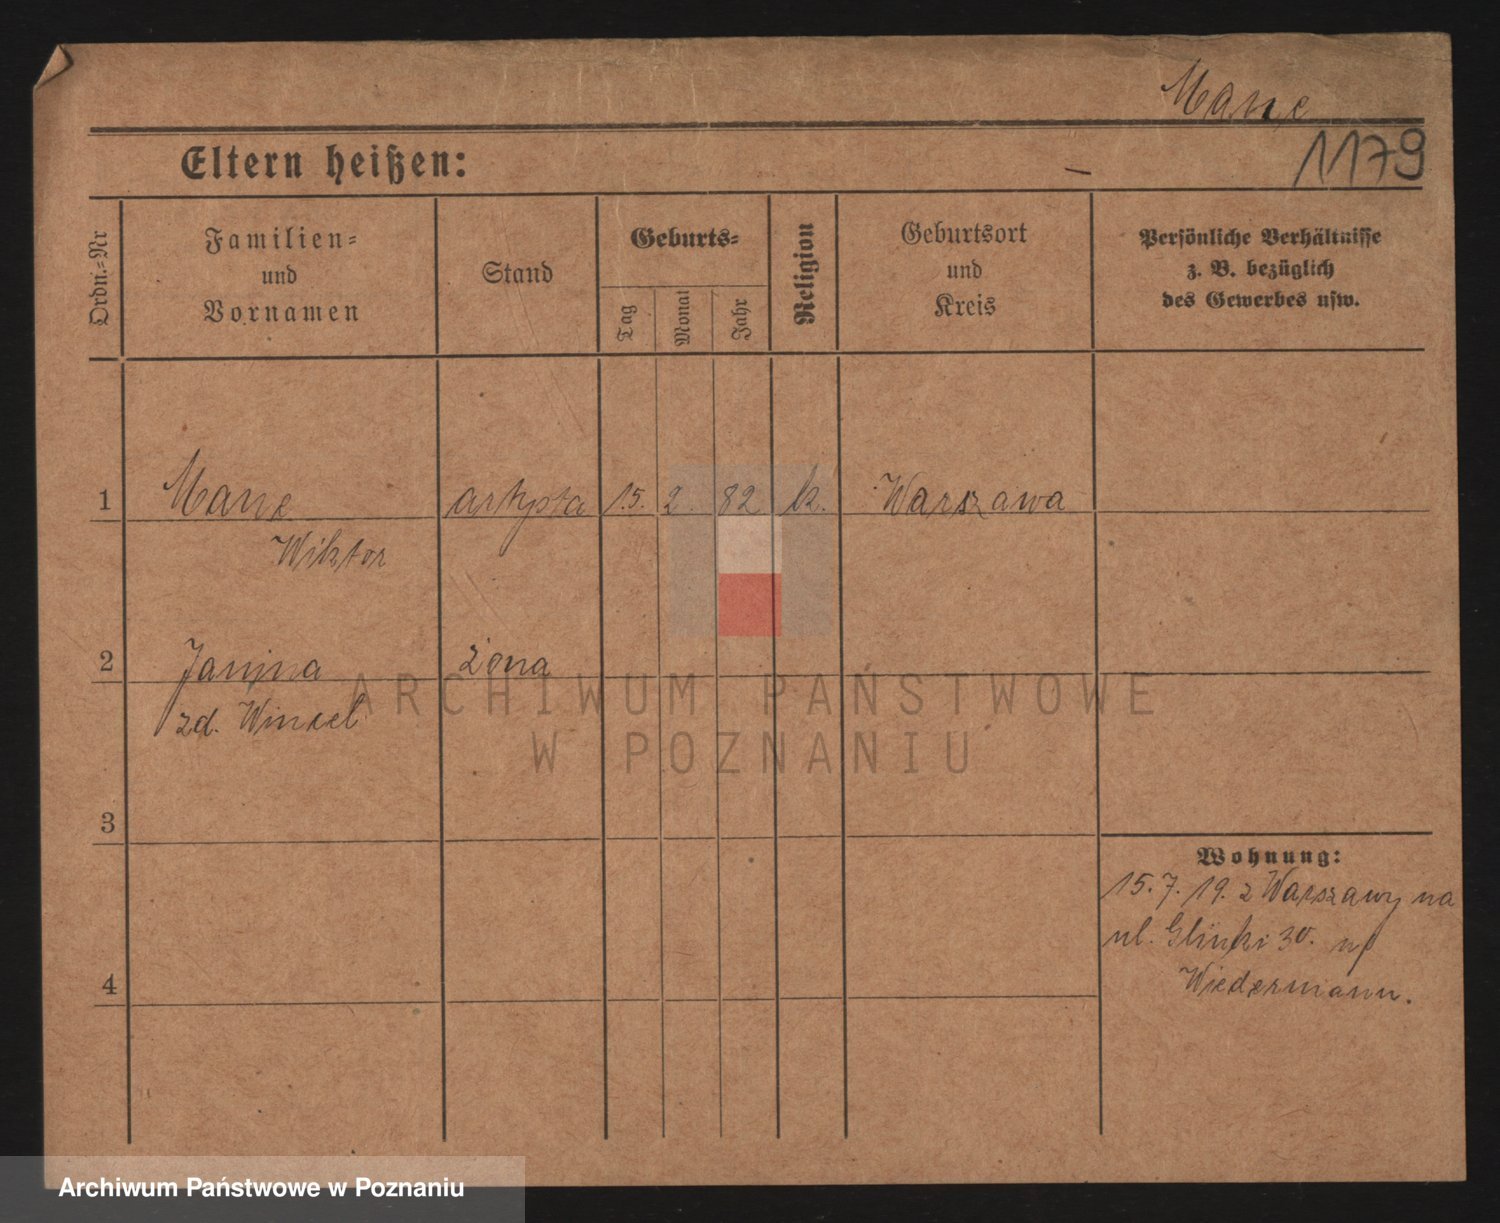 Mane
1179
Eltern heißen: —
Ordn.-Nr
Familien-
und
Vornamen
Stand
Geburts-
Tag
Monat
Jahr
Religion
Geburtsort
und
Kreis
Persönliche Verhältnisse
z. B. bezüglich
des Gewerbes usw.
1 Mane artysta 15. 2. 82 k. Warszawa
Wiktor
2 Janina żona
zd. Winzel
3
Wohnung:
15. 7. 19. z Warszawy na
ul. Glinki 30. up
Wiedermann.
4
ARCHIWUM PAŃSTWOWE
W POZNANIU
Archiwum Państwowe w Poznaniu